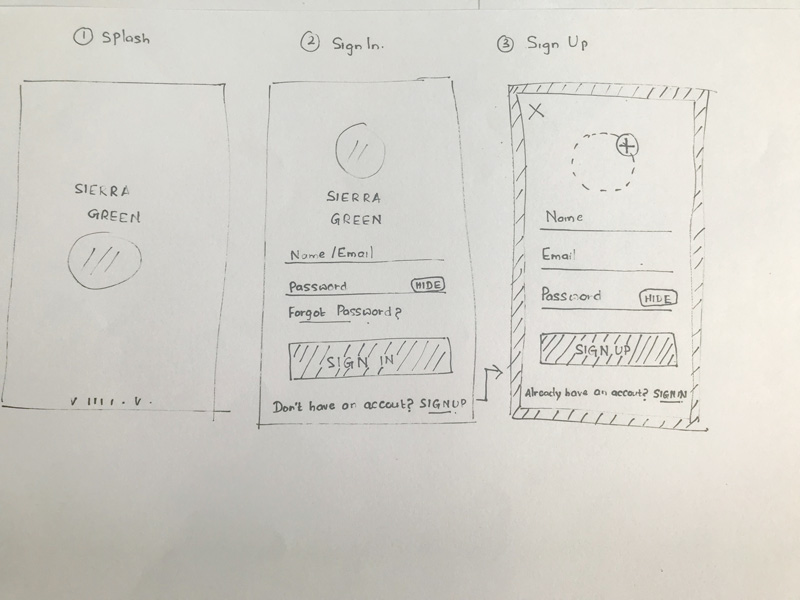 ① Splash
② Sign In.
③ Sign Up
SIERRA
GREEN
SIERRA
GREEN
Name/Email
Password HIDE
Forgot Password?
SIGN IN
Don't have an accout? SIGNUP
X
+
Name
Email
Password HIDE
SIGN UP
Already have an accout? SIGN IN